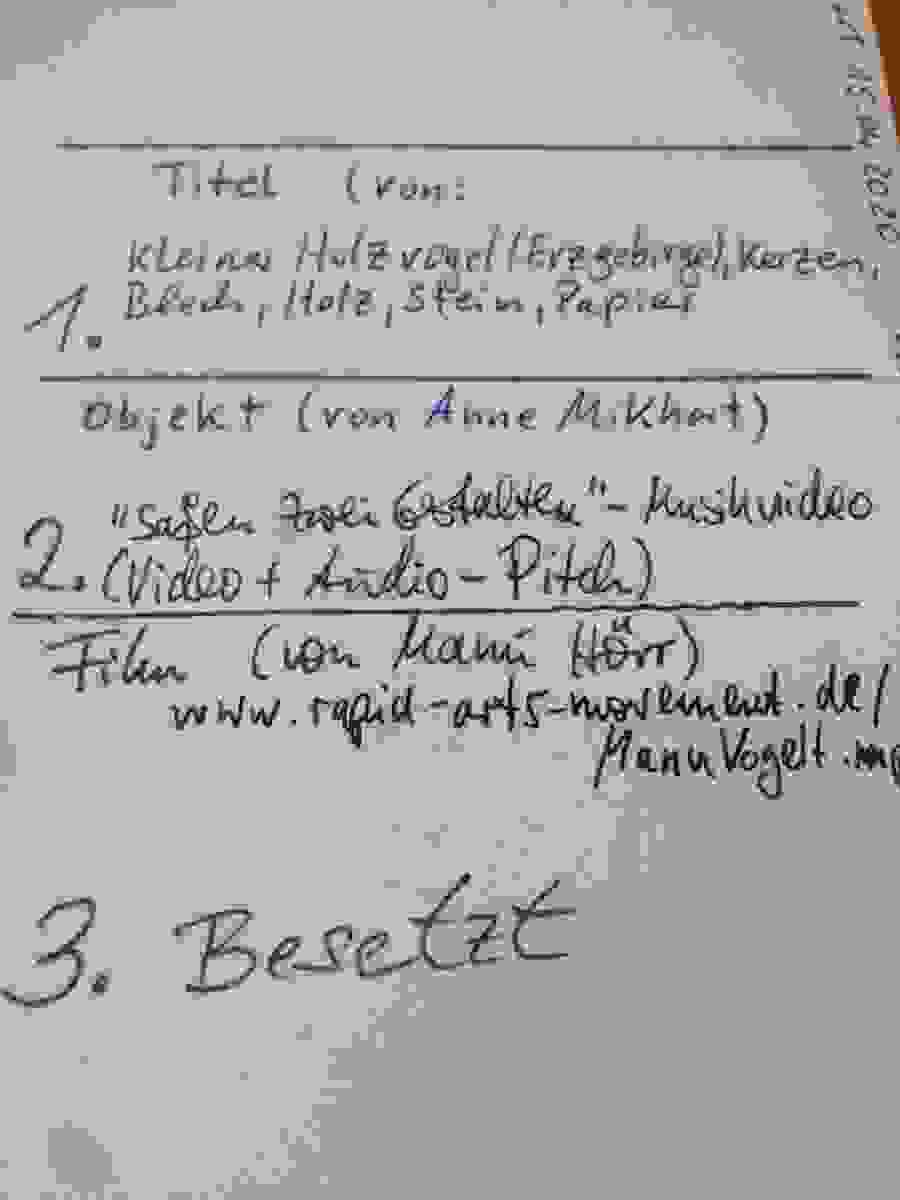 Titel (von:
kleiner Holzvogel (Erzgebirge), Kerzen,
1. Blech, Holz, Stein, Papier
Objekt (von Anne Mikhart)
"Saßen zwei Gestalten" - Musikvideo
2. (Video + Audio - Pitch)
Film (von Manu Hörr)
www.rapid-arts-movement.de/
ManuVogelt.mp
3. Besetzt
15.04 2020